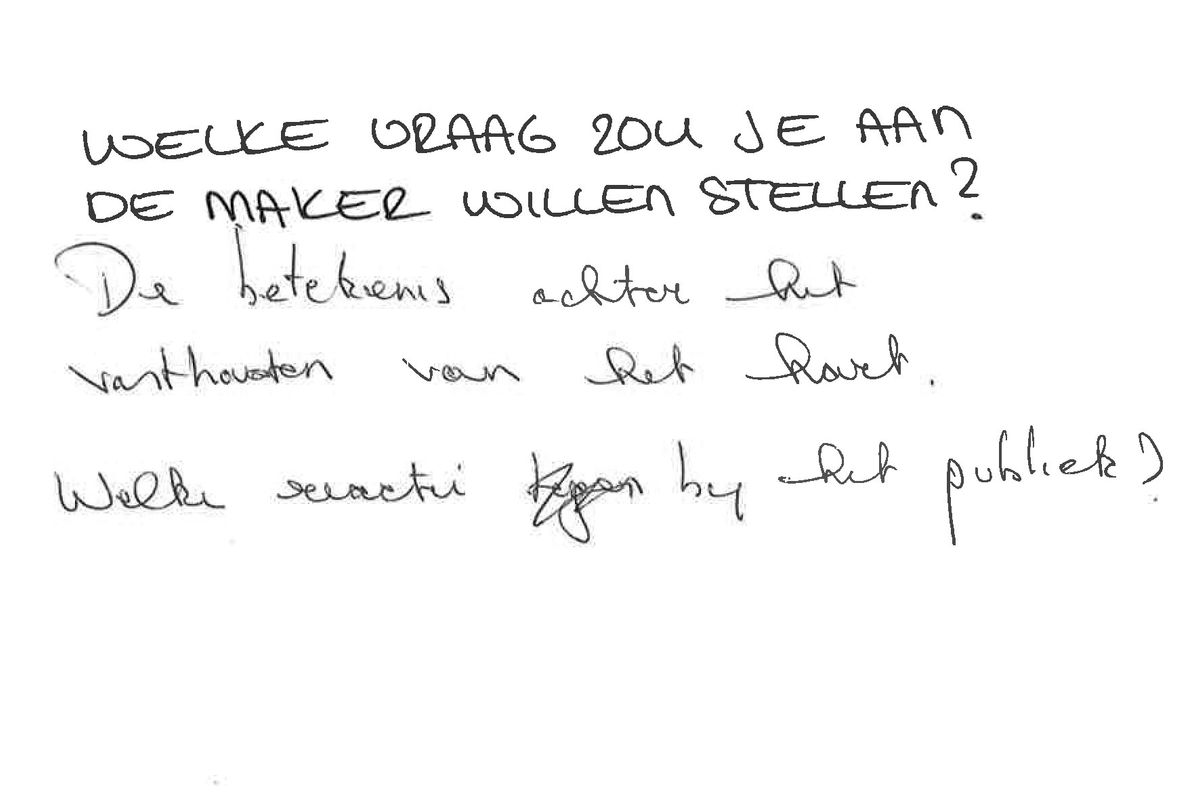 WELKE VRAAG ZOU JE AAN
DE MAKER WILLEN STELLEN?
De betekenis achter het
vasthouden van het hart.
Welke reactie by het publiek?